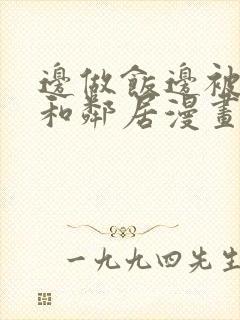 邊做飯邊被
和鄰居漫畫
一九九四先生